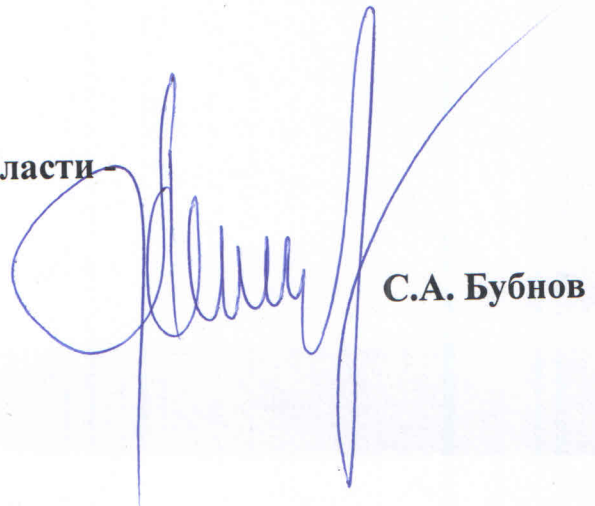 ласти -
С.А. Бубнов